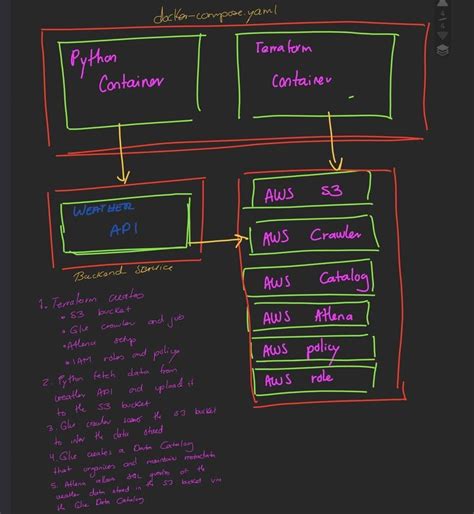 docker-compose.yaml
Python
Container
Terraform
Container
WEATHER
API
Backend service
AWS S3
AWS Crawler
AWS Catalog
AWS Athena
AWS policy
AWS role
1. Terraform creates
• S3 bucket
• Glue crawler and job
• Athena setup
• IAM roles and policy
2. Python fetch data from
weather API and upload it
to the S3 bucket
3. Glue crawler the S3 bucket
to infer the data stored
4. Glue creates a Data Catalog
that organizes and maintains metadata
5. Athena allows SQL queries of the
weather data stored in the S3 bucket via
the Glue Data Catalog